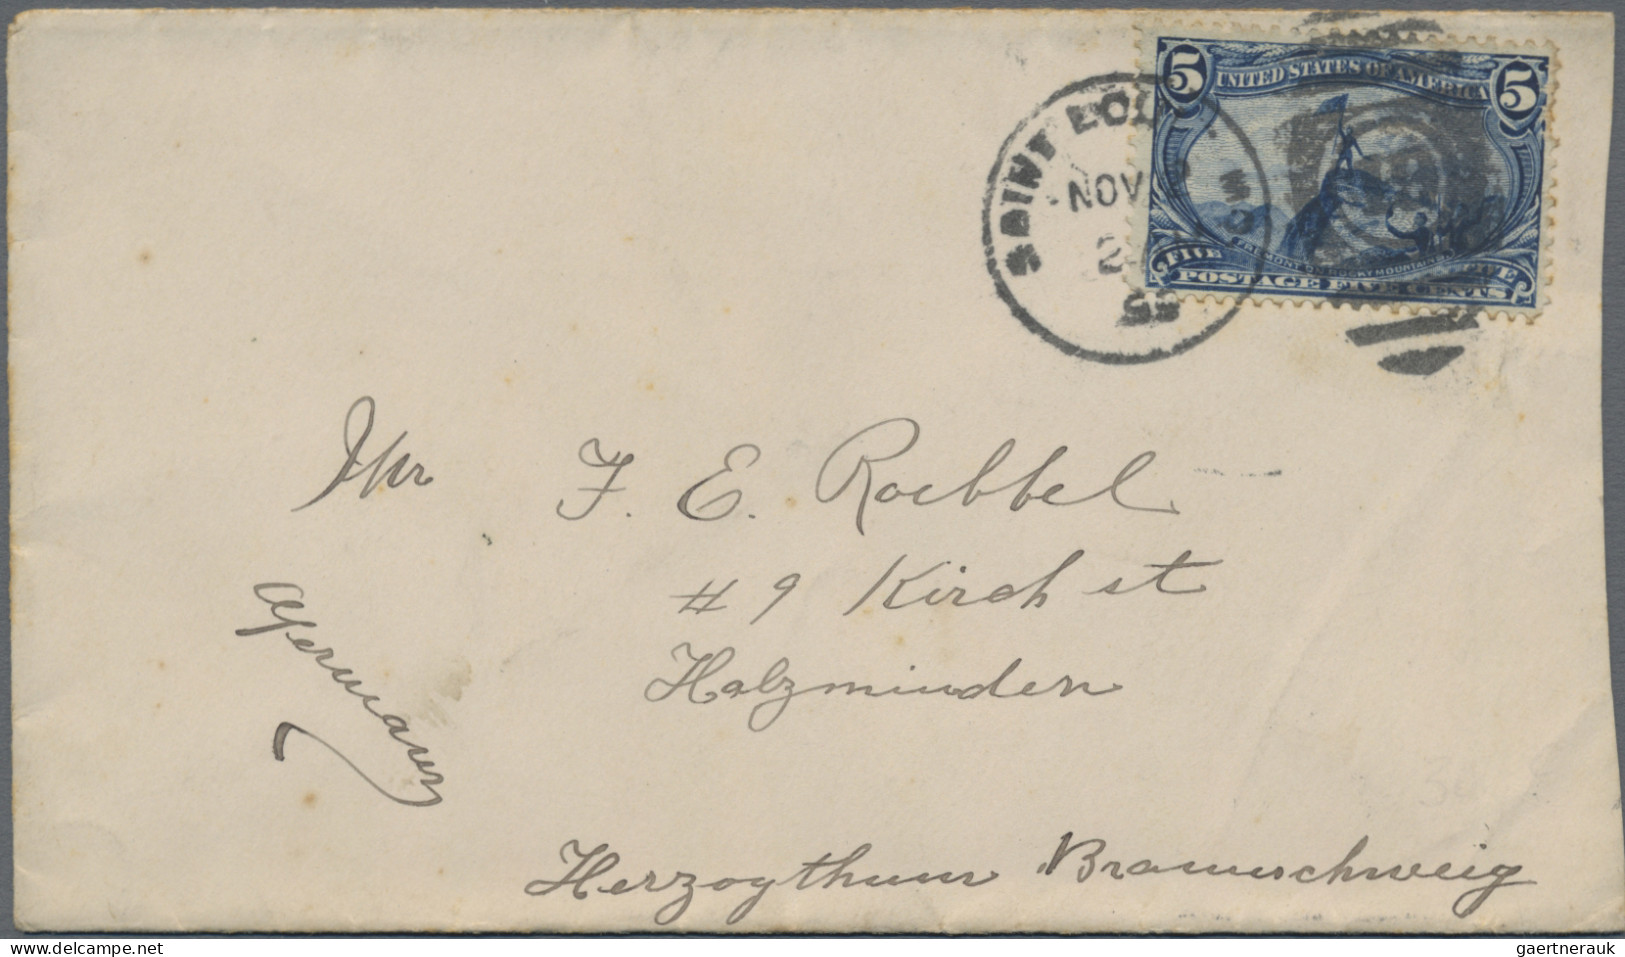 5 UNITED STATES OF AMERICA 5
SAINT LOUIS MO
NOV
2
FREMONT ON ROCKY MOUNTAINS
FIVE FIVE
POSTAGE FIVE CENTS
Mr F. E. Roebbel
# 9 Kirch st
Holzminden
Germany
Herzogthum Braunschweig
gaertnerauk
delcampe.net